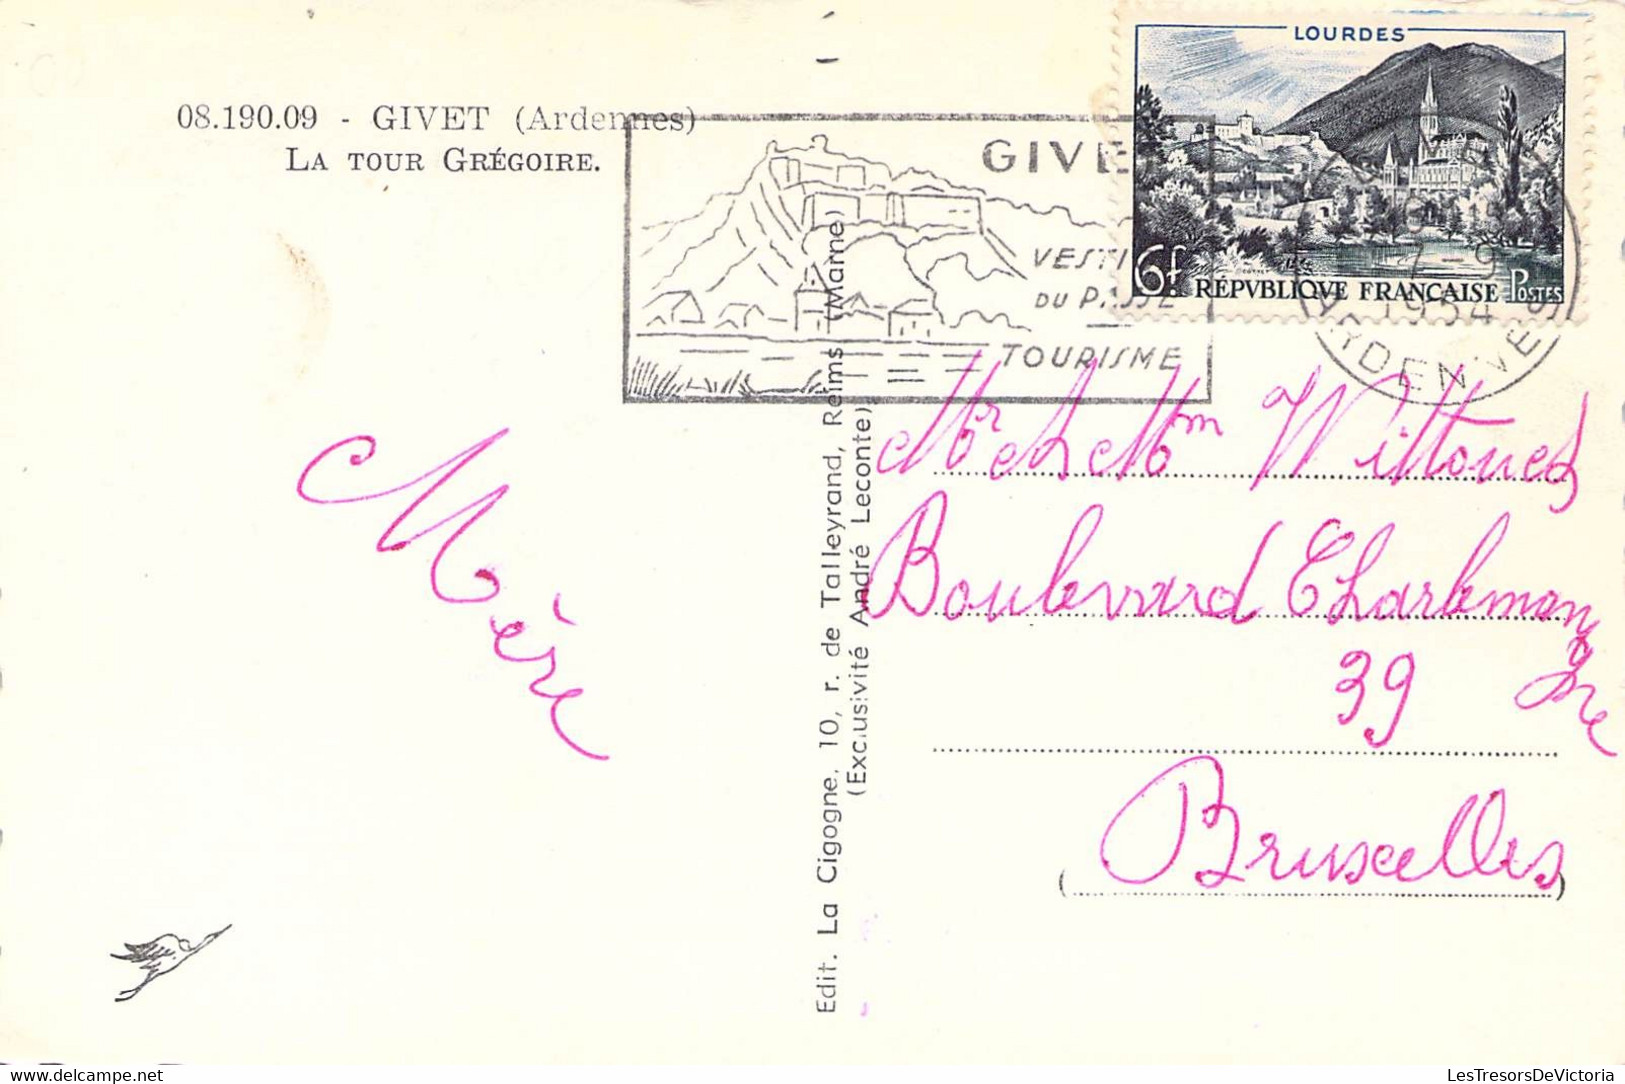 08.190.09 - GIVET (Ardennes)
LA TOUR GRÉGOIRE.
GIVE
VESTI
DU PASSE
TOURISME
LOURDES
6f RÉPVBLIQVE FRANÇAISE POSTES
GIVET
7-9
1954
ARDENNES
Mère
Edit. La Cigogne, 10, r. de Talleyrand, Reims (Marne)
(Exclusivité André Leconte)
Mr et Mm Wittouck
Boulevard Charleman
gne
39
Bruxelles
LesTresorsDeVictoria